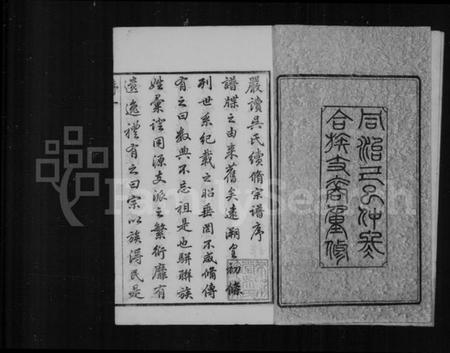 同治三年仲冬
合族支裔重修
嚴讀吳氏續脩宗譜序
譜牒之由來舊矣遠溯皇初條
列世系紀載之昭垂罔不咸備傳
有之曰數典不忘祖是也駢聯族
姓彙諡同源支派之繁衍靡有
遺逸禮有之曰宗以族得民是
FamilySearch